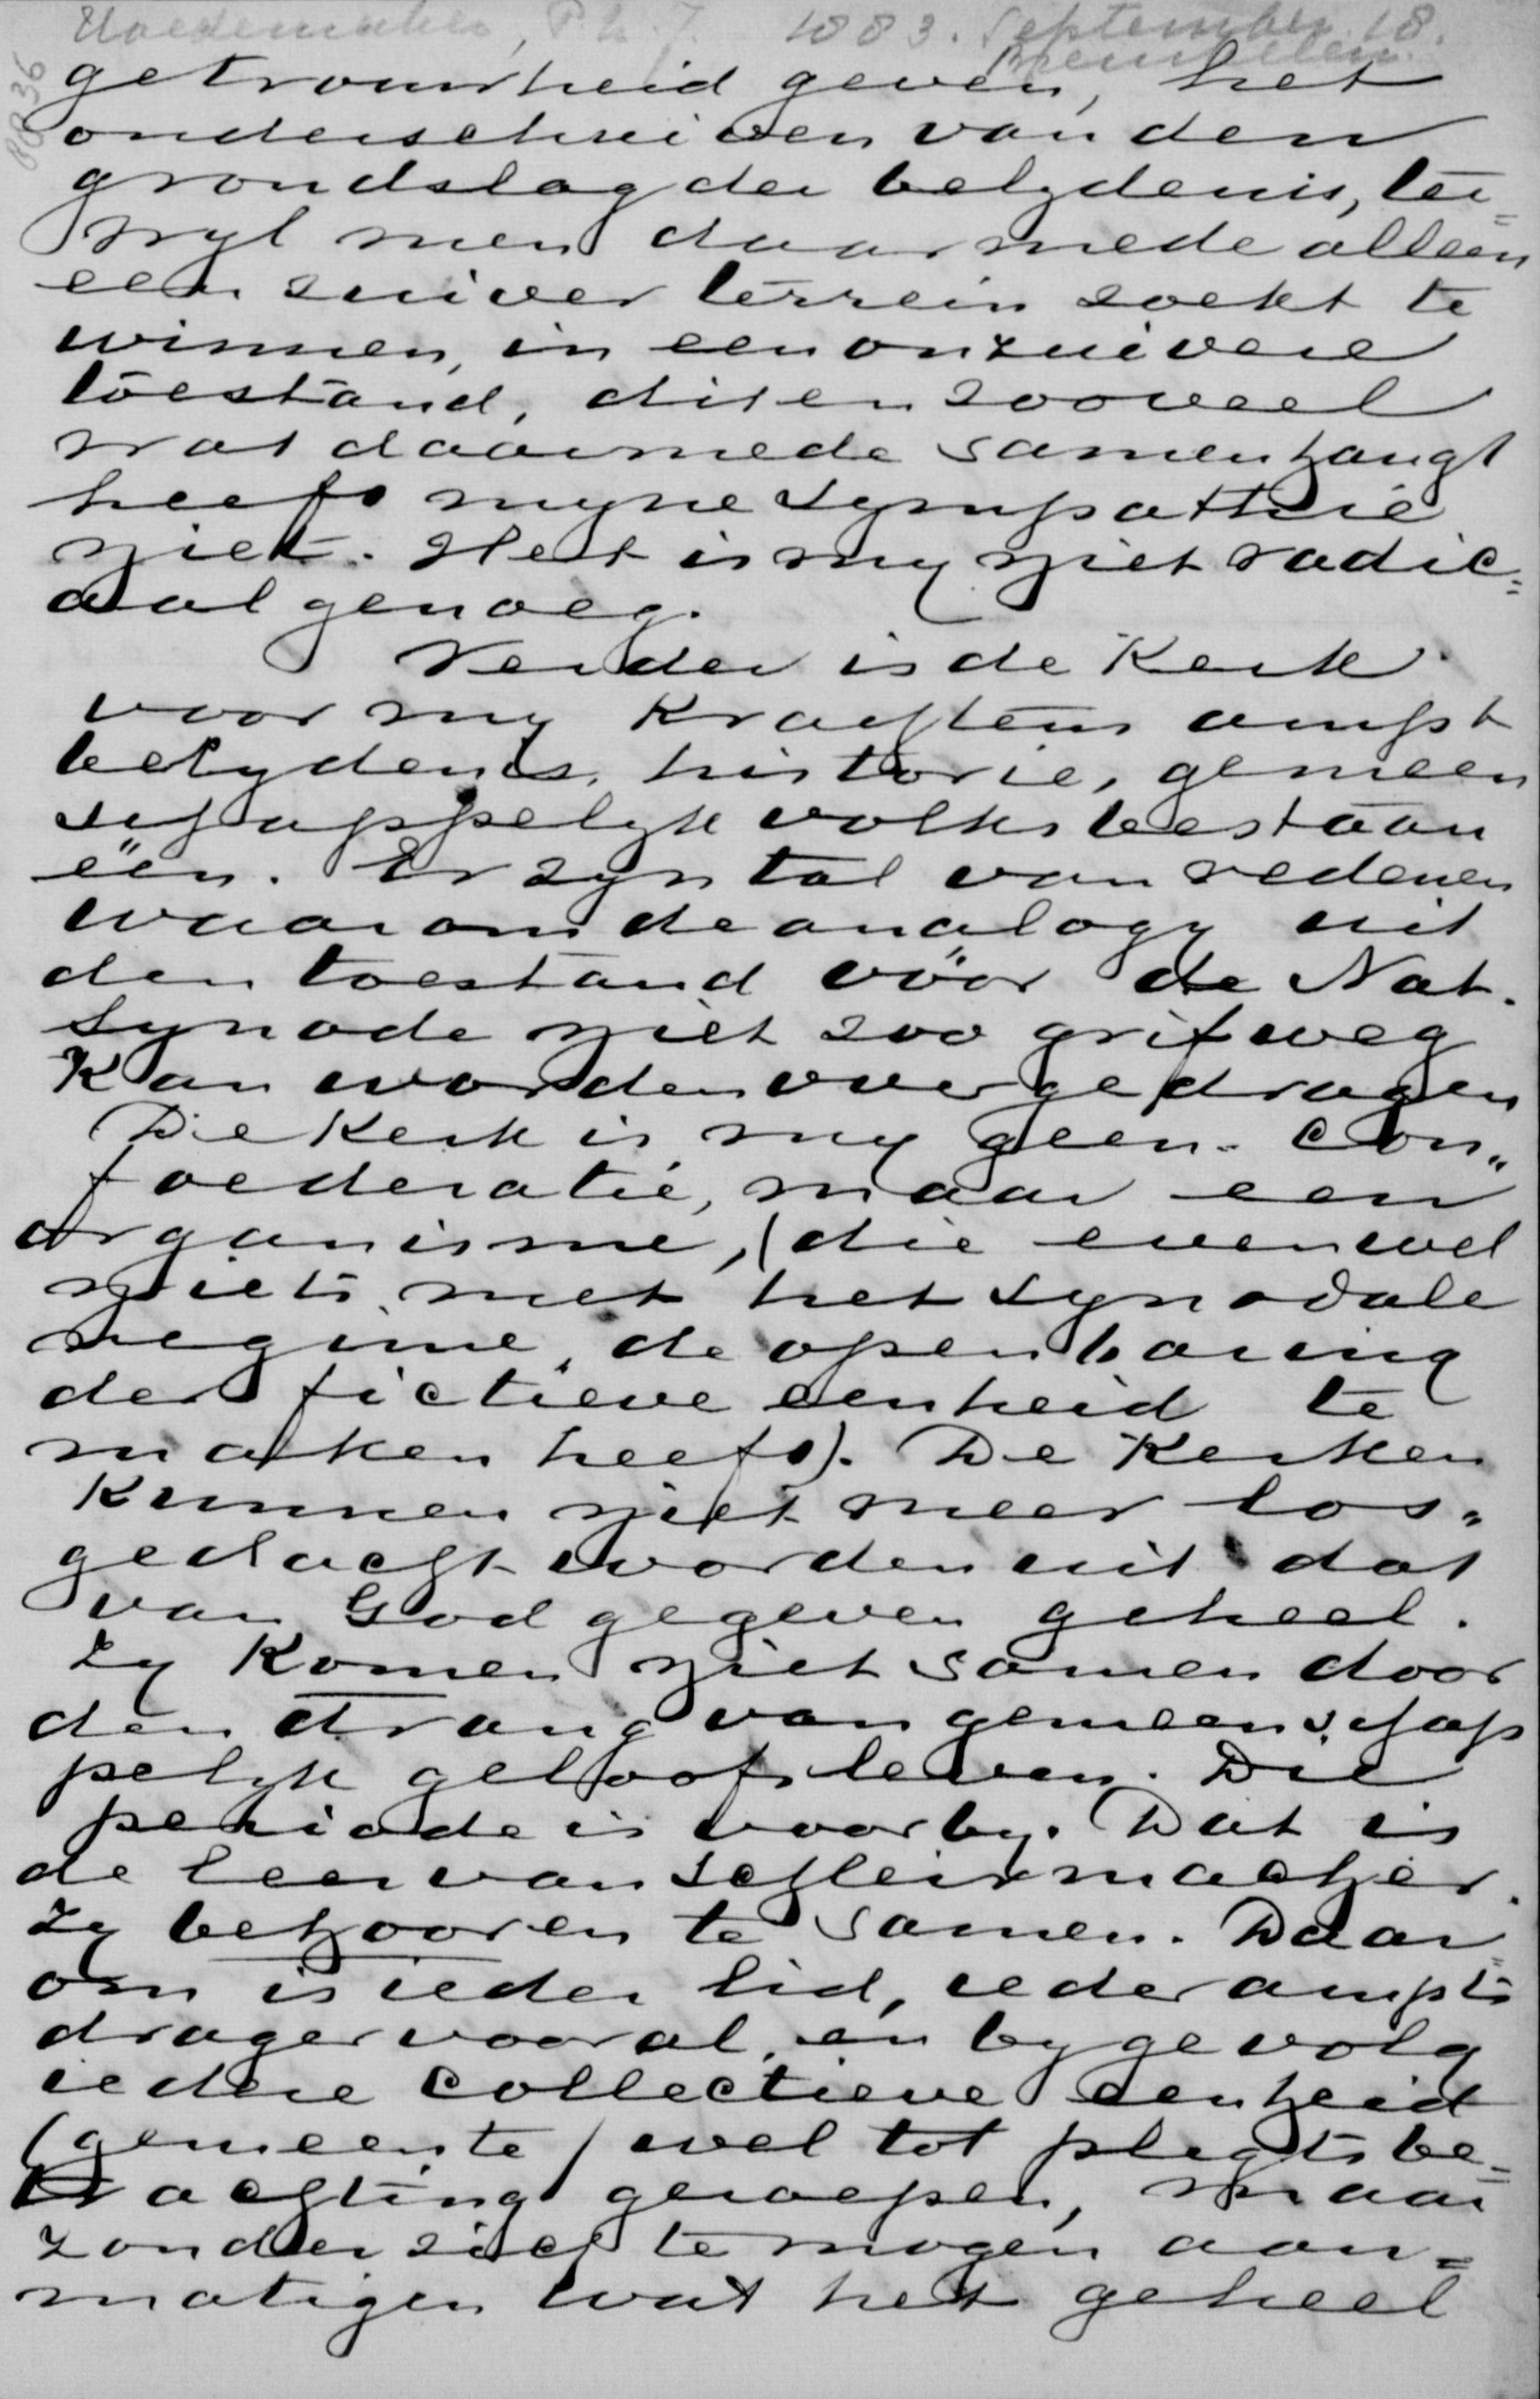 Hoedemaker, Ph. J. 1883. September 18.
0036
getrouwheid geven, het
onderschrijven van den
grondslag der belydenis, ter=
wyl men daarmede alleen
een zuiver terrein zoekt te
winnen, in een onzuivere
toestand, dit en zooveel
wat daarmede samenhangt
heeft myne sympathie
niet. Het is my niet radic=
aal genoeg.
Verder is de Kerk
voor my Krachtens ampt
belydenis, historie, gemeen
schappelyk volksbestaan
één. Er zyn tal van redenen
waarom de analogy uit
den toestand vóór de Nat.
Synode niet zoo grifweg
Kan worden overgedragen
De Kerk is my geen con„
foederatie, maar een
organisme, (die evenwel
niets met het synodale
regime, de openbaring
der fictieve eenheid te
maken heeft). De Kerken
Kunnen niet meer los„
gedacht worden uit dat
van God gegeven geheel.
Zy Komen niet samen door
den drang van gemeenschap
pelyk geloofsleven. Die
periode is voorby. Dat is
de leer van Schleiermacher.
Zy behooren te samen. Daar=
om is ieder lid, ieder ampts
drager vooral, en by gevolg
iedere collectieve eenheid
(gemeente) wel tot plegtsbe=
trachting geroepen, maar
zonder zich te mogen aan=
matigen wat het geheel